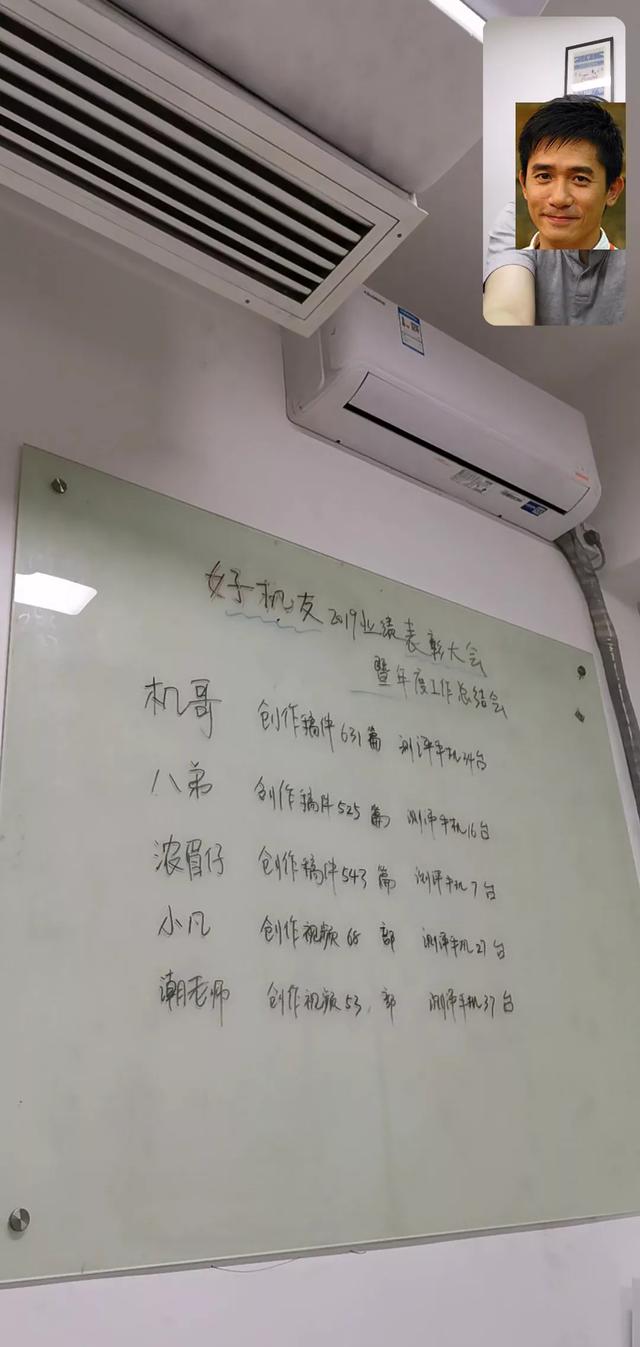 好机友2019业绩表彰大会
暨年度工作总结会
机哥 创作稿件631篇 测评手机34台
八弟 创作稿件525篇 测评手机16台
浓眉仔 创作稿件543篇 测评手机7台
小凡 创作视频68部 测评手机27台
潮老师 创作视频53.部 测评手机37台